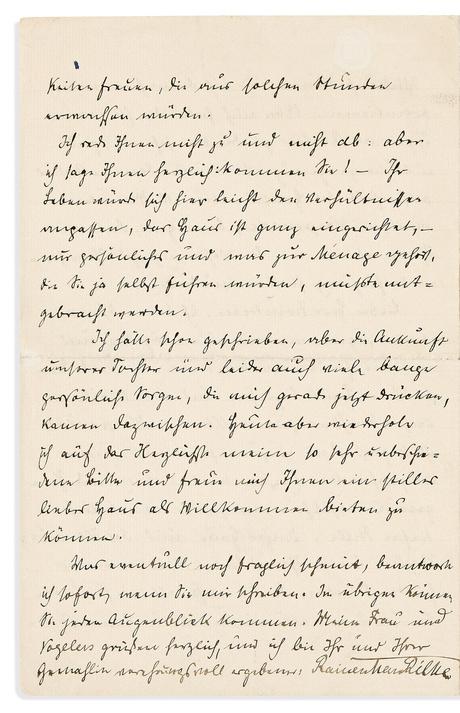 keiten freuen, die aus solchen Stunden
erwachsen würden.
Ich rede Ihnen nicht zu und nicht ab: aber
ich sage Ihnen herzlich: kommen Sie! – Ihr
Leben würde sich hier leicht den Verhältnissen
anpassen, das Haus ist ganz eingerichtet, –
nur persönliches und was zur Menage gehört,
die Sie ja selbst führen würden, müsste mit-
gebracht werden.
Ich hätte schon geschrieben, aber die Ankunft
unserer Tochter und leider auch viele bange
persönliche Sorgen, die mich gerade jetzt drücken,
kamen dazwischen. Heute aber wiederhole
ich auf das Herzlichste meine so sehr unbeschie-
dene Bitte und freue mich Ihnen ein stilles
liebes Haus als Willkommen bieten zu
können.
Was eventuell noch fraglich scheint, beantworte
ich sofort, wenn Sie mir schreiben. Im übrigen können
Sie jeden Augenblick kommen. Meine Frau und
Vogelers grüßen herzlich, und ich bin Ihr und Ihrer
Gemahlin verehrungsvoll ergebener: Rainer Maria Rilke